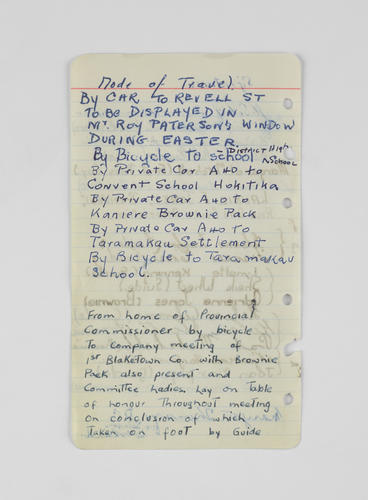 Mode of Travel.
By CAR TO REVELL ST
TO BE DISPLAYED IN
Mr. ROY PATERSON'S WINDOW
DURING EASTER.
By Bicycle to School District High School
By Private Car A40 to
Convent School Hokitika
By Private Car A40 To
Kaniere Brownie Pack
By Private Car A40 To
Taramakau Settlement
By Bicycle to Taramakau
School.
From home of Provincial
Commissioner by bicycle
To Company meeting of
1st Blaketown Co. with Brownie
Pack also present and
Committee Ladies. Lay on Table
of honour Throughout meeting
on conclusion of which
Taken on foot by Guide